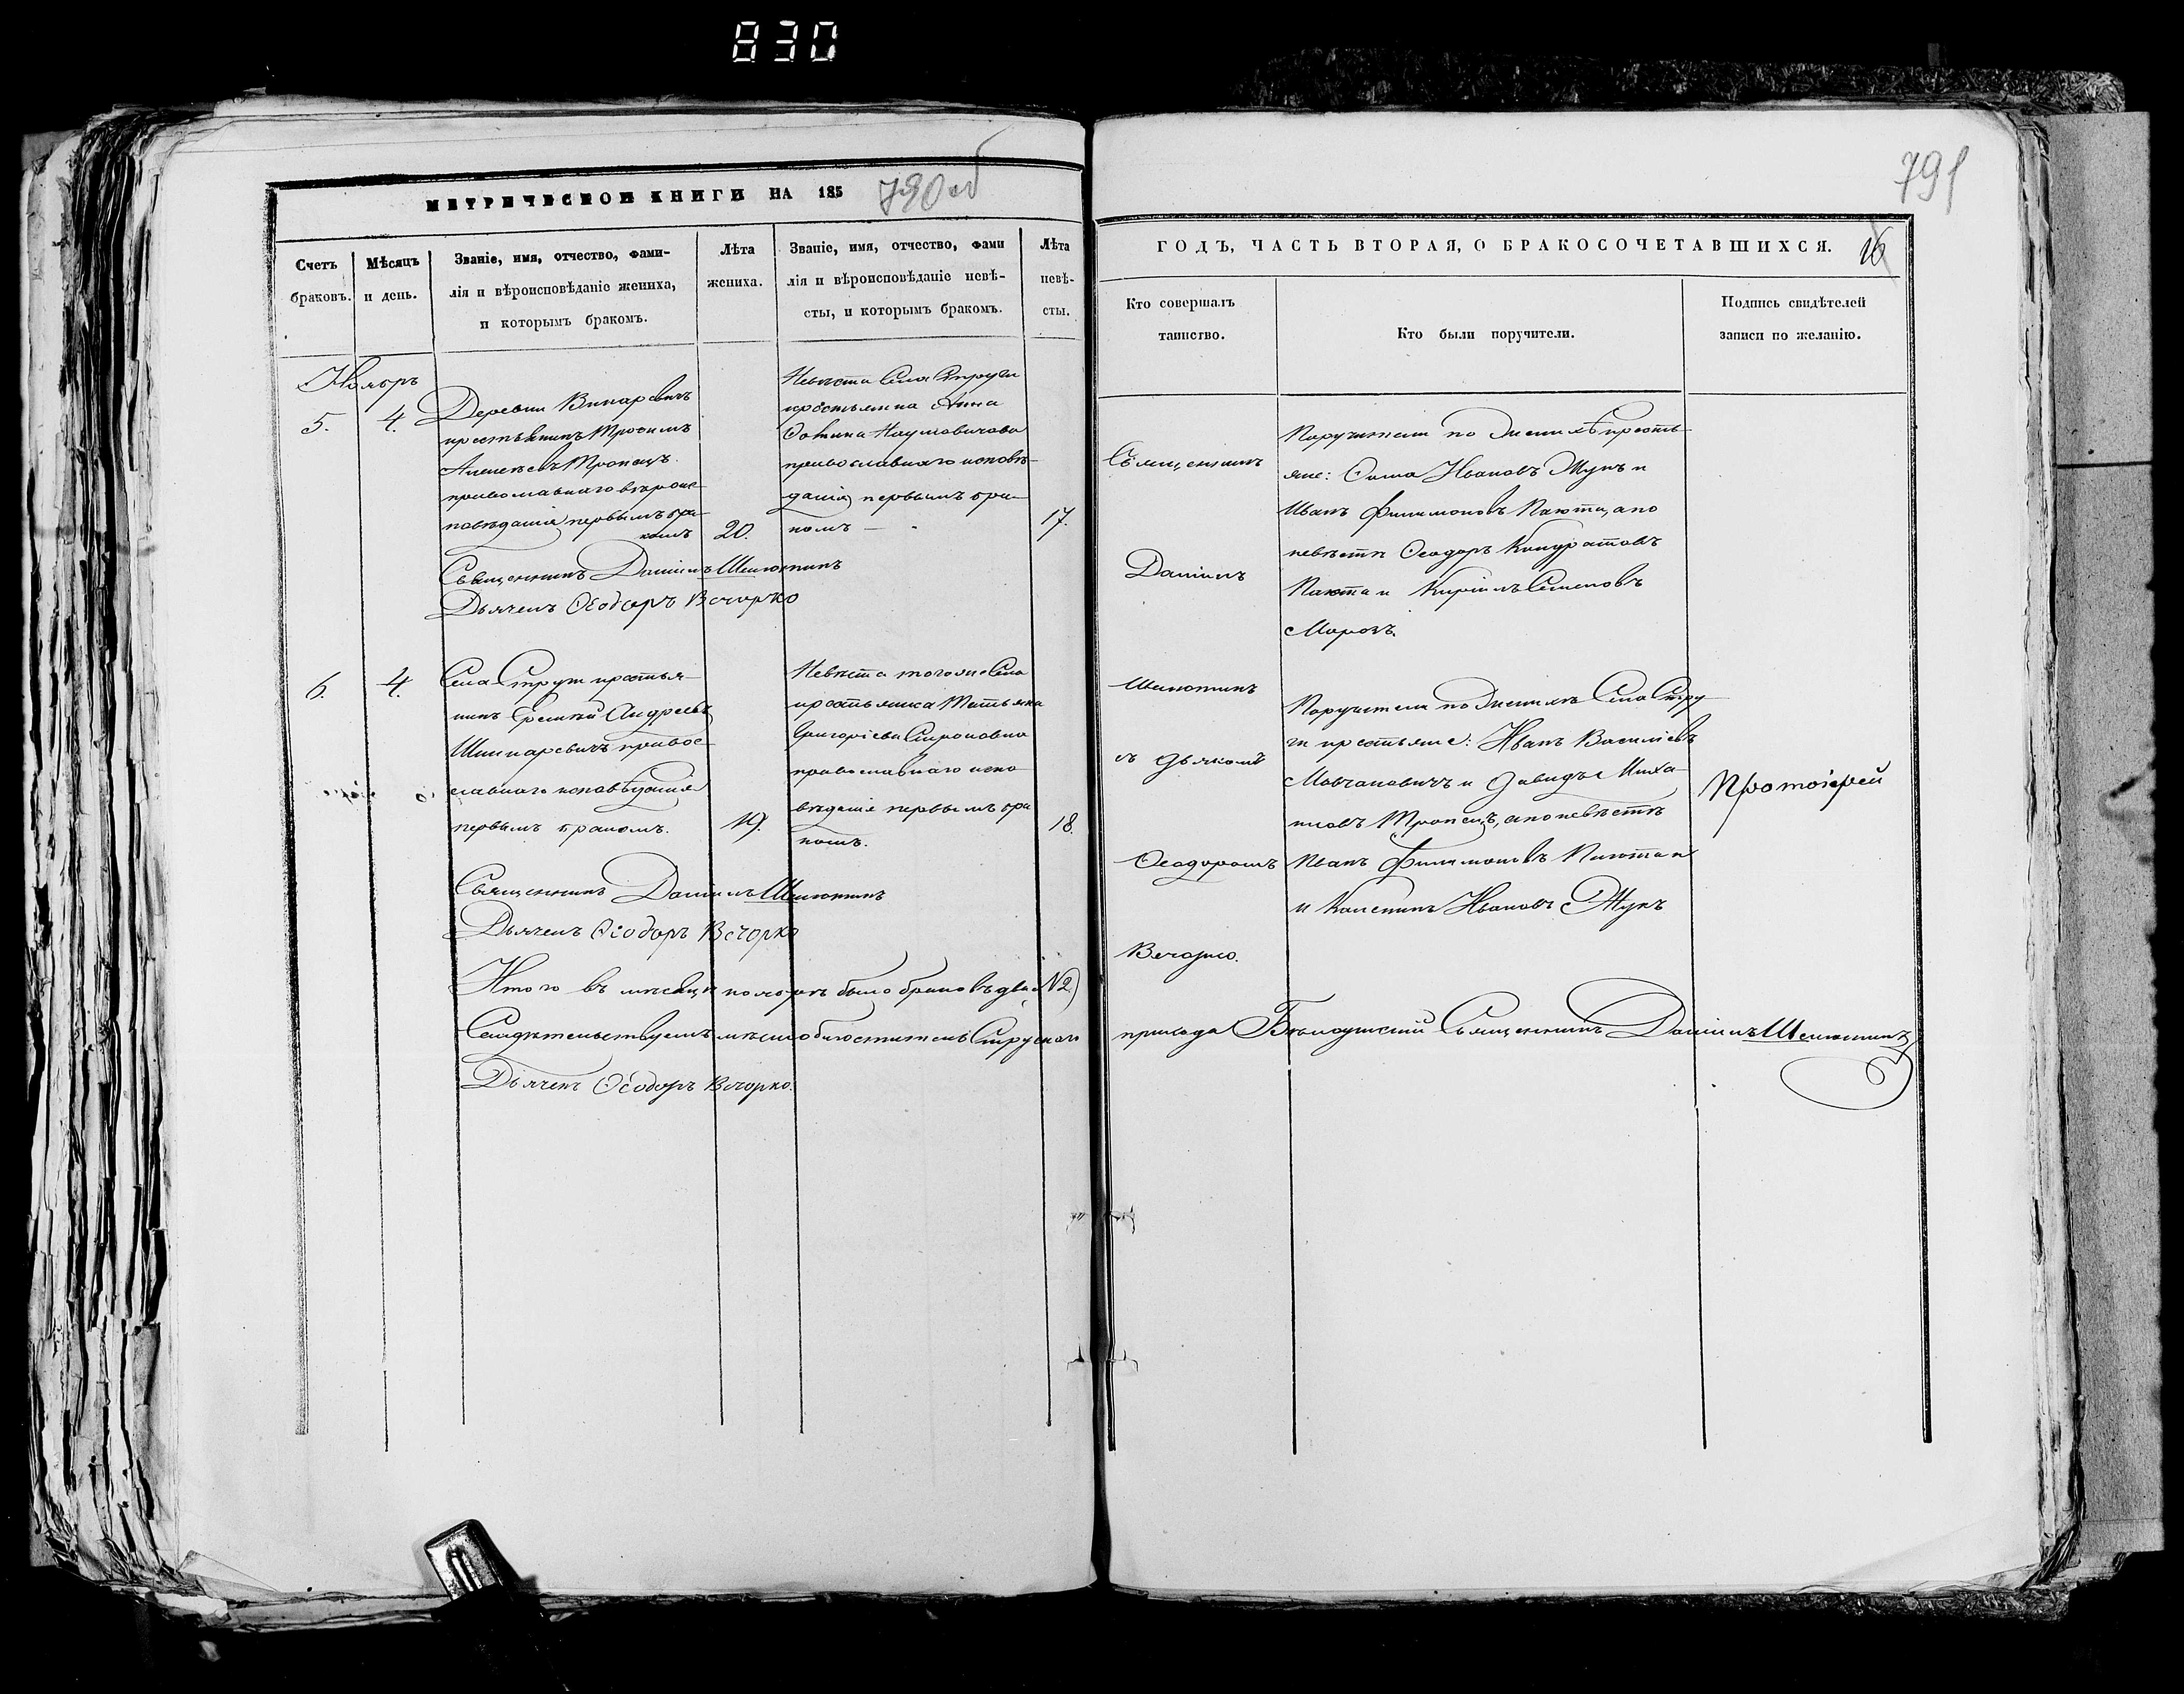 830
790 об
МЕТРИЧЕСКОЙ КНИГИ НА 185
Счетъ браковъ.
Мѣсяцъ и день.
Званіе, имя, отчество, фами-
лія и вѣроисповѣданіе жениха,
и которымъ бракомъ.
Лѣта
жениха.
Званіе, имя, отчество, фами
лія и вѣроисповѣданіе невѣ-
сты, и которымъ бракомъ.
Лѣта
невѣ-
сты.
Ноябрь
5.
4.
Деревни
крестьянинъ Трофимъ
Алексѣевъ Тропецъ
православнаго вѣроис-
повѣданія первымъ бра-
комъ
20.
Невѣста Села Струги
крестьянка Анна
православнаго исповѣ-
данія первымъ бра-
комъ —
17.
Священникъ Даніилъ Шелютинъ
Дьячекъ Ѳеодоръ Вечорко
6.
4.
Села Струги крестья-
нинъ Андреевъ
правос-
лавнаго исповѣданія
первымъ бракомъ.
19.
Невѣста тогоже Села
крестьянка Татьяна
Григоріева
православнаго испо
вѣданія первымъ бра
комъ.
18.
Священникъ Даніилъ Шелютинъ
Дьячекъ Ѳеодоръ Вечорко
Итого въ мѣсяцѣ ноябрѣ было браковъ два (№ 2)
Дьячекъ Ѳеодоръ Вечорко.
791
ГОДЪ, ЧАСТЬ ВТОРАЯ, О БРАКОСОЧЕТАВШИХСЯ.
16
Кто совершалъ
таинство.
Кто были поручители.
Подпись свидѣтелей
записи по желанію.
Священникъ
Даніилъ
Шелютинъ
съ дьячкомъ
Ѳеодоромъ
Вечорко.
Поручители по Женихѣ крестья-
яне: Сома Ивановъ Жукъ и
Иванъ Филимоновъ а по
невѣстѣ Ѳеодоръ Кондратовъ
и Кирилъ Семеновъ
Морозъ.
Поручители по Женихѣ Села Стру
ги крестьяне: Иванъ Василіевъ
Мовчановичъ и Давидъ Миха-
иловъ Тропецъ, а по невѣстѣ
Иванъ Филимоновъ
и Ивановъ Жукъ
Протоіерей
прихода Священникъ Даніилъ Шелютинъ